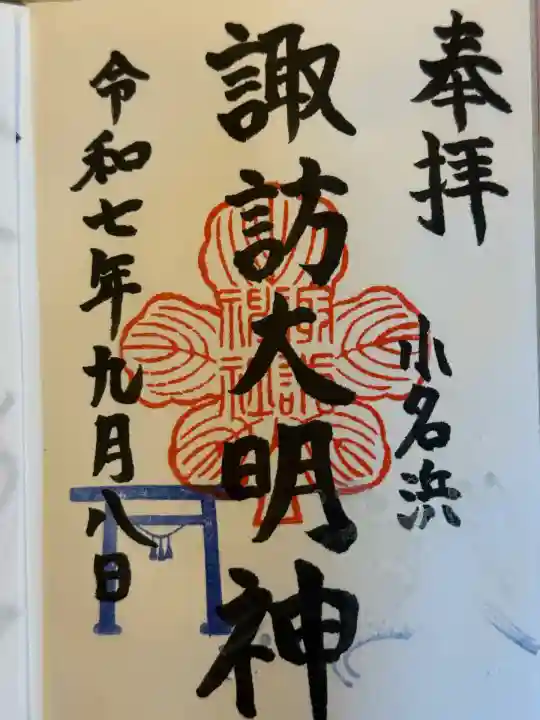 奉拝
小名浜
諏訪大明神
令和七年九月八日